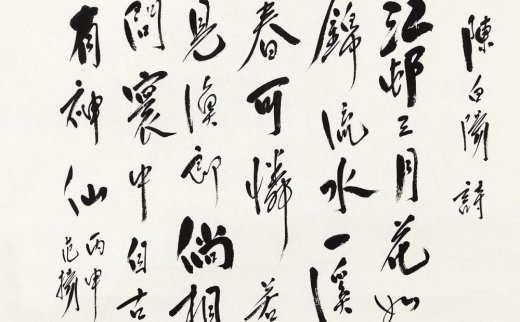 陳白陽詩
江邨三月花如
錦流水一溪
春可憐若
見漁郎倘相
問寰中自古
有神仙
丙申
范揚